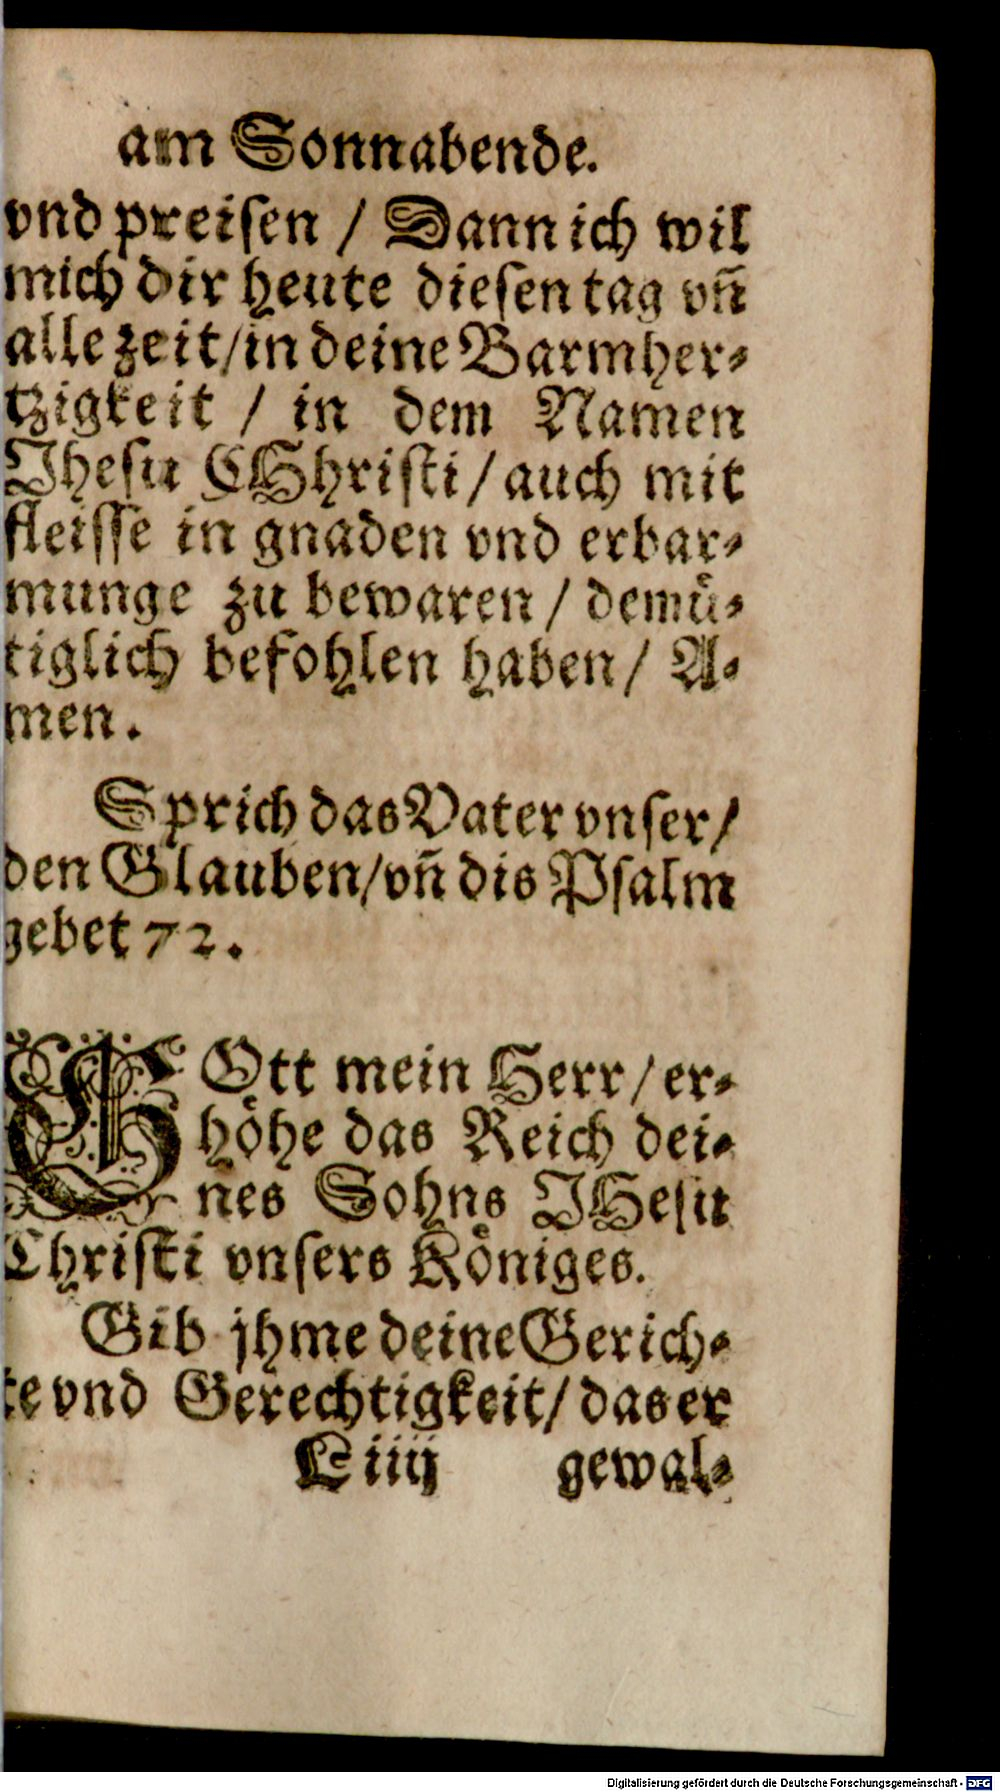 am Sonnabende.
vnd preisen / Dann ich wil
mich dir heute diesen tag vñ
alle zeit/in deine Barmher⸗
tzigkeit / in dem Namen
Jhesu CHhristi/auch mit
fleisse in gnaden vnd erbar⸗
munge zu bewaren / demuͤ⸗
tiglich befohlen haben/ A⸗
men.
Sprich das Vater vnser/
den Glauben/vñ dis Psalm
gebet 72.
Gott mein Herr/er⸗
hoͤhe das Reich dei⸗
nes Sohns JHesu
Christi vnsers Koͤniges.
Gib jhme deine Gerich⸗
te vnd Gerechtigkeit/das er
L iiij gewal⸗
Digitalisierung gefördert durch die Deutsche Forschungsgemeinschaft - DFG